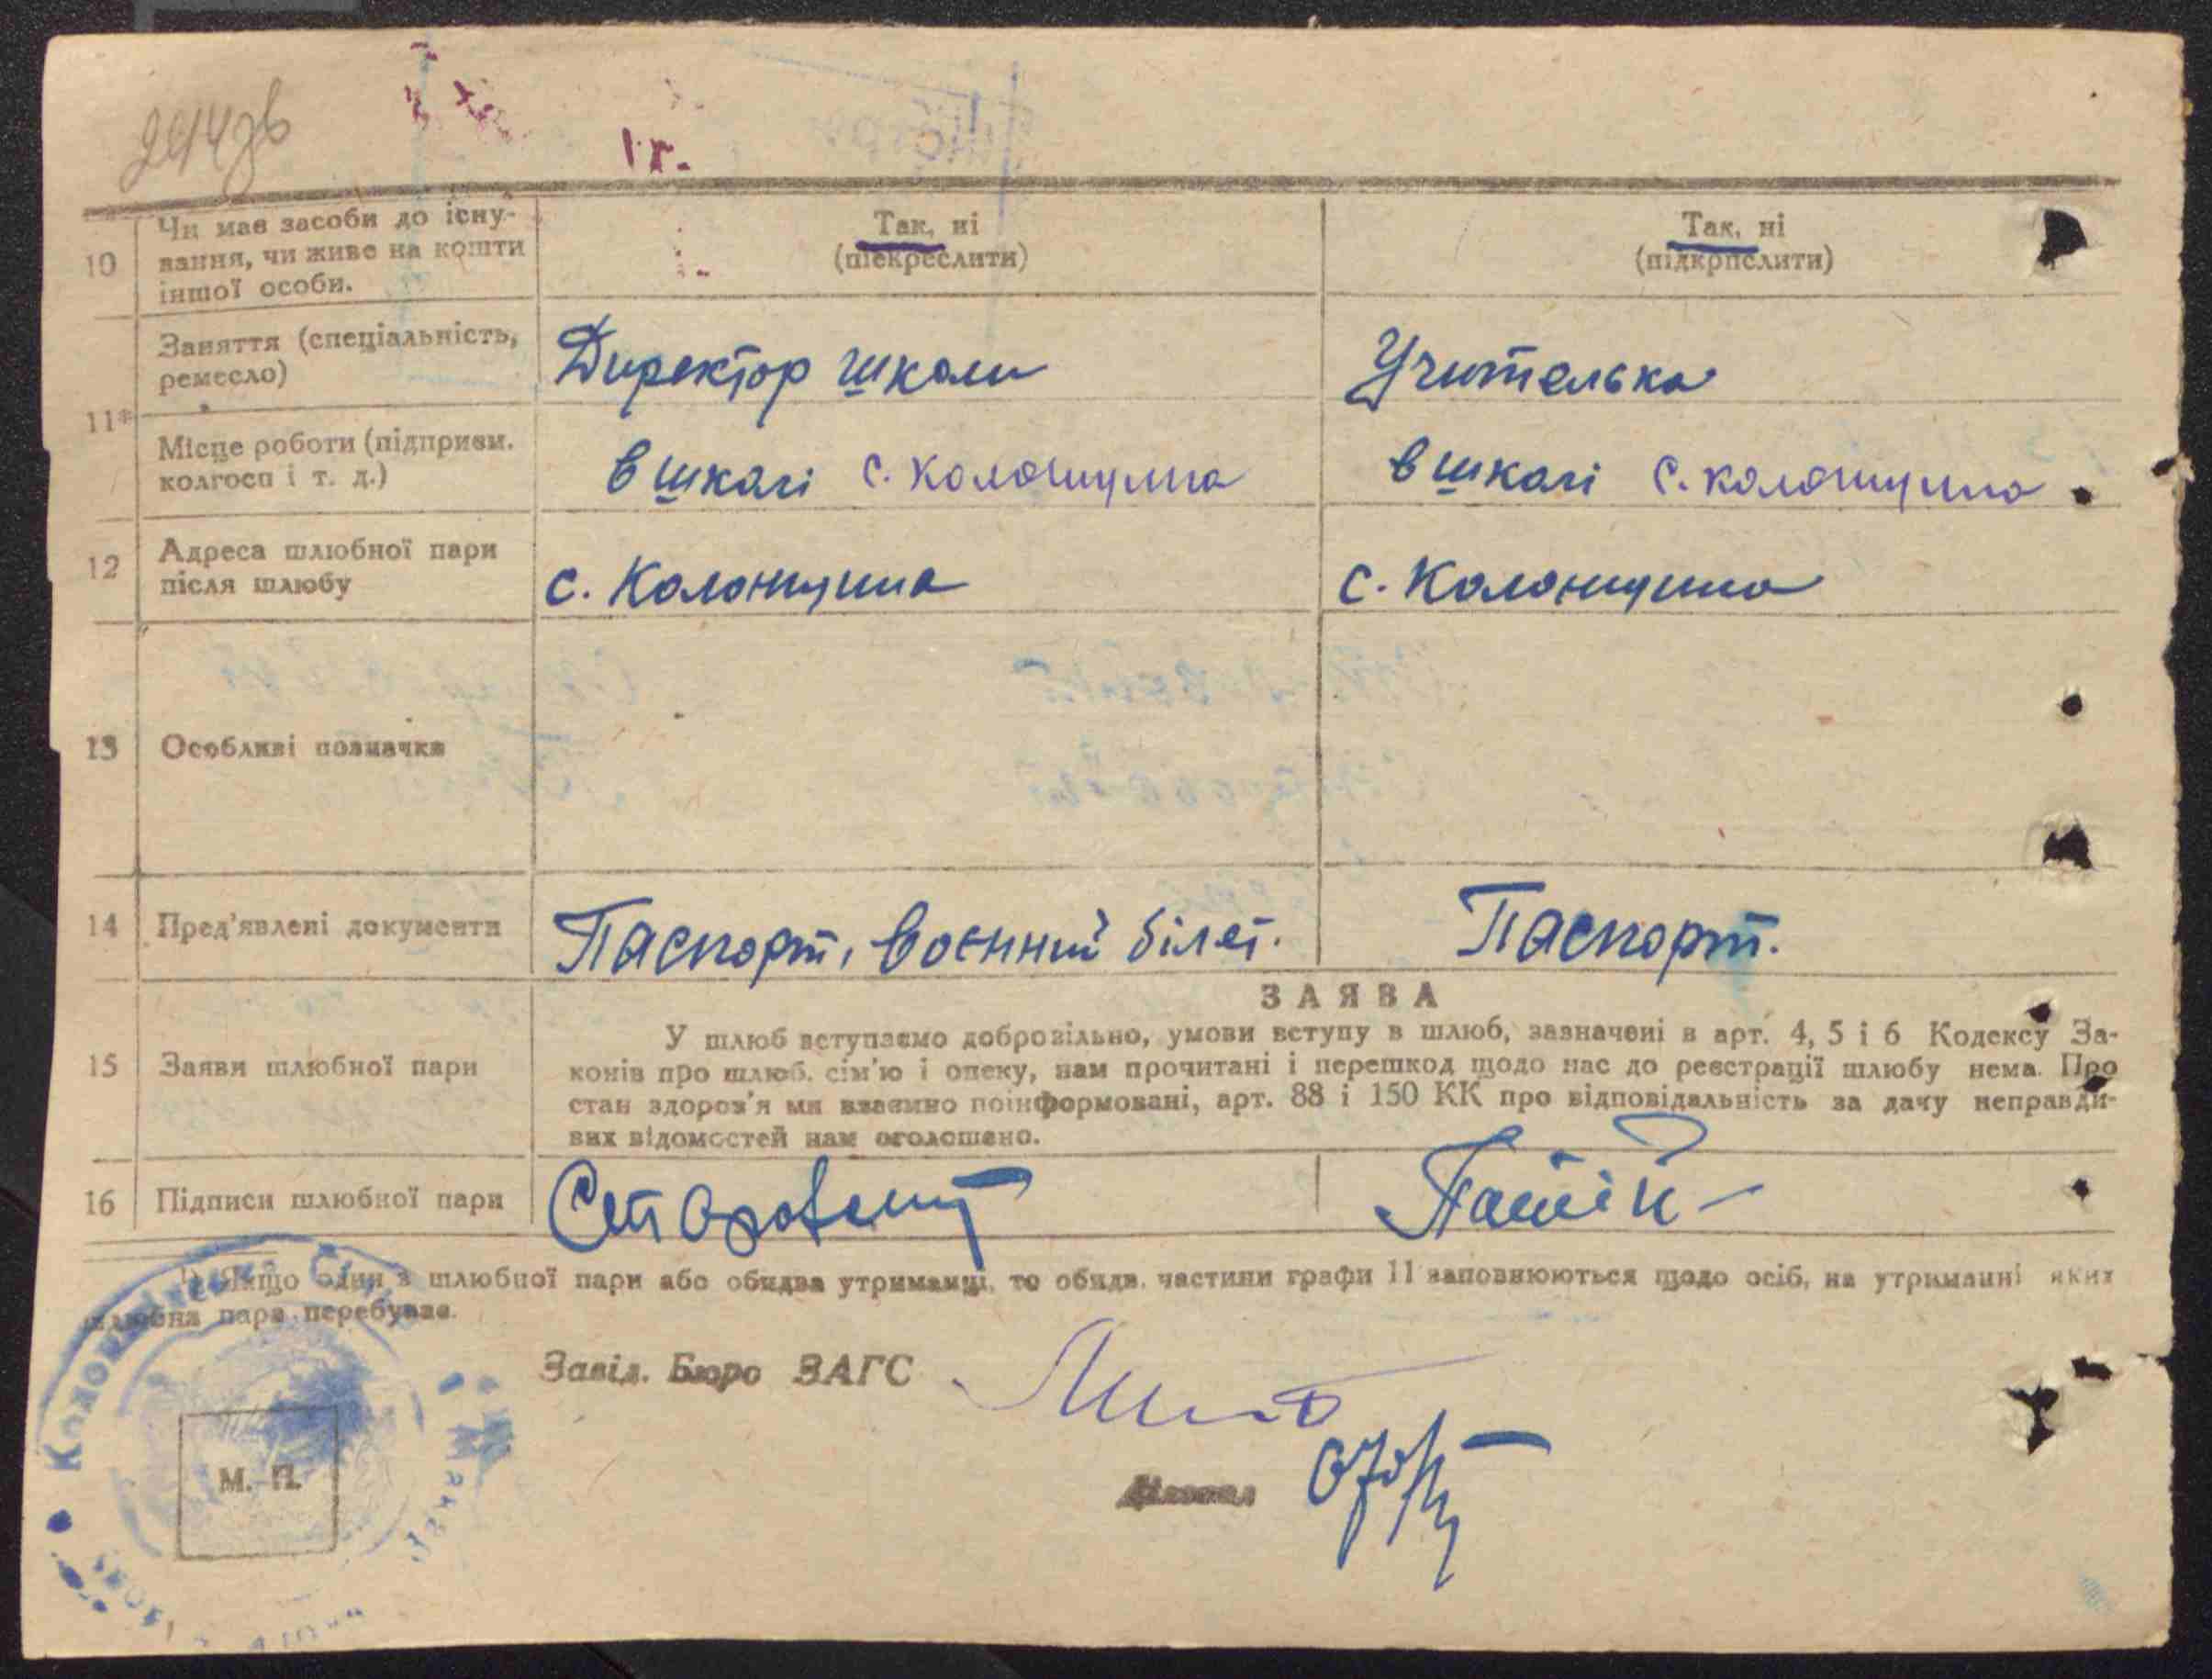 244зв
1г.
10
Чи має засоби до існу-
вання, чи живе на кошти
іншої особи.
Так, ні
(підкреслити)
Так, ні
(підкрпслити)
11*
Заняття (спеціальність,
ремесло)
Директор школи
Учителька
Місце роботи (підприєм.
колгосп і т. д.)
в школі с. Колонщина
в школі с. Колонщина
12
Адреса шлюбної пари
після шлюбу
с. Колонщина
с. Колонщина
13
Особливі позначки
14
Пред'явлені документи
Паспорт, воєнний білет.
Паспорт.
15
Заяви шлюбної пари
ЗАЯВА
У шлюб вступаємо добровільно, умови вступу в шлюб, зазначені в арт. 4, 5 і 6 Кодексу За-
конів про шлюб. сім'ю і опеку, нам прочитані і перешкод щодо нас до реєстрації шлюбу нема. Про
стан здоров'я ми взаємно поінформовані, арт. 88 і 150 КК про відповідальність за дачу неправди-
вих відомостей нам оголошено.
16
Підписи шлюбної пари
Якщо один з шлюбної пари або обидва утриманці, то обидв. частини графи 11 заповнюються щодо осіб, на утриманні яких
шлюбна пара перебуває.
Завід. Бюро ЗАГС
М. П.
Діловод